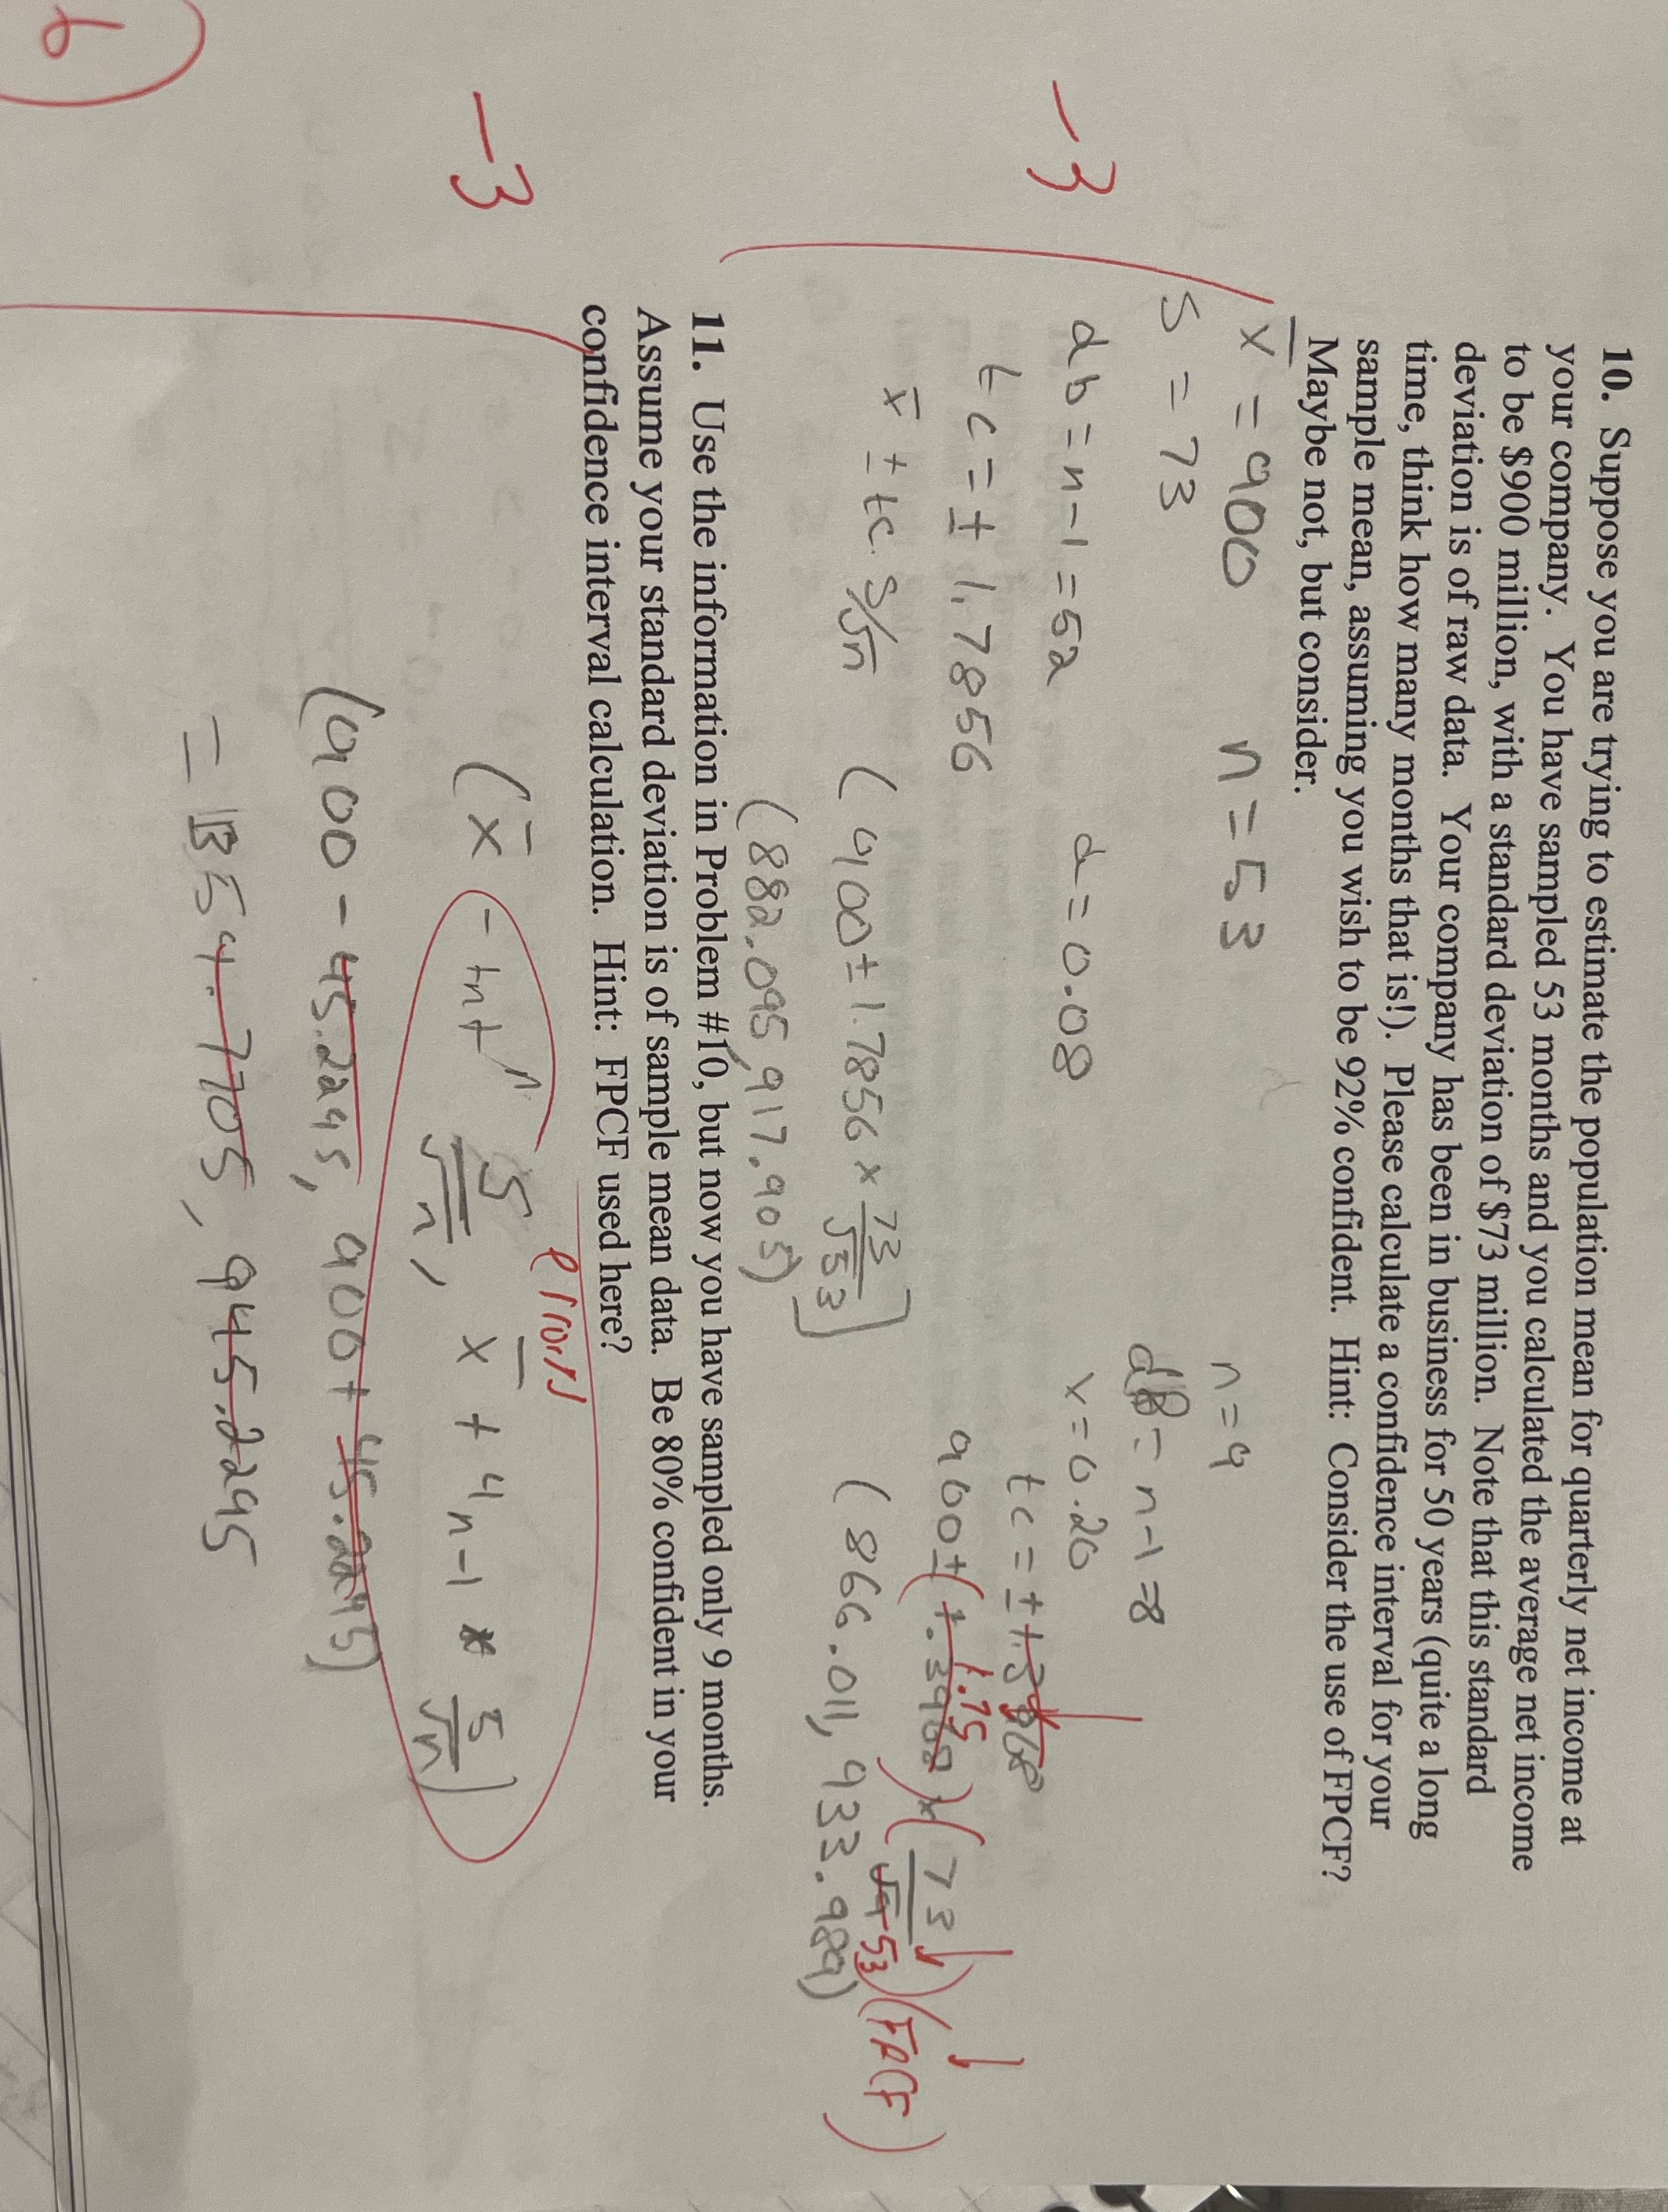 10. Suppose you are trying to estimate the population mean for quarterly net income at
your company. You have sampled 53 months and you calculated the average net income
to be $900 million, with a standard deviation of $73 million. Note that this standard
deviation is of raw data. Your company has been in business for 50 years (quite a long
time, think how many months that is!). Please calculate a confidence interval for your
sample mean, assuming you wish to be 92% confident. Hint: Consider the use of FPCF?
Maybe not, but consider.
x̄ = 900 n = 53 n = 9
s = 73 n-1 = 8
-3
n-1 = 52 α = 0.08 = 0.20
tc = ± 1.7856 tc = ±
900 ± ( 1.75 ) ( 73 / √53 ) (FPCF)
x̄ ± tc · s/√n ( 900 ± 1.7856 × 73/√53 ] (866.011, 933.989)
(882.095, 917.905)
11. Use the information in Problem #10, but now you have sampled only 9 months.
Assume your standard deviation is of sample mean data. Be 80% confident in your
confidence interval calculation. Hint: FPCF used here?
errors
-3
(x̄ - s/√n, x̄ + n-1 * s/√n)
(900 - 45.2295, 900 + 45.2295)
= 854.7705, 945.2295